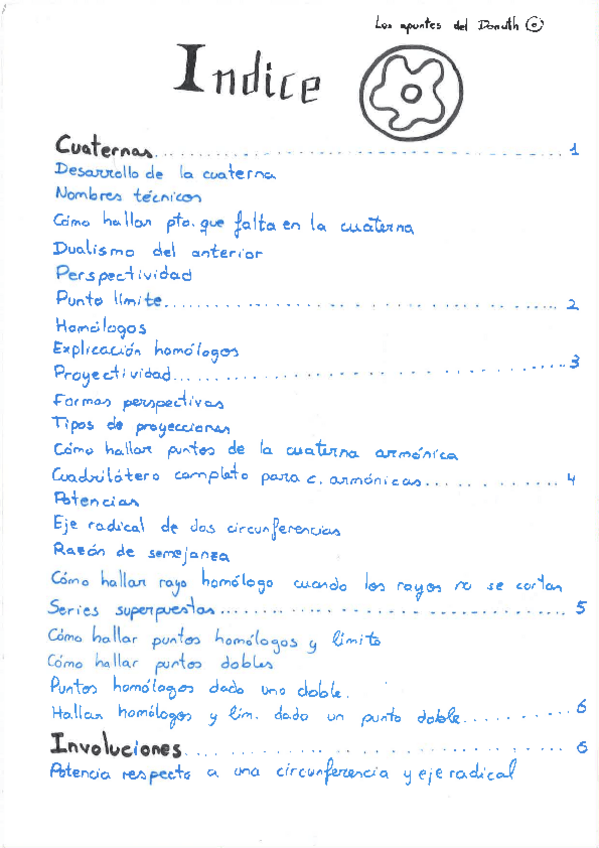 Los apuntes del Donuth
Indice
Cuaternas.......................................................... 1
Desarrollo de la cuaterna
Nombres técnicos
Cómo hallar pto. que falta en la cuaterna
Dualismo del anterior
Perspectividad
Punto límite.......................................................... 2
Homólogos
Explicación homólogos
Proyectividad.......................................................... 3
Formas perspectivas
Tipos de proyecciones
Cómo hallar puntos de la cuaterna armónica
Cuadrilátero completo para c. armónicas.................. 4
Potencias
Eje radical de dos circunferencias
Razón de semejanza
Cómo hallar rayo homólogo cuando los rayos no se cortan
Series superpuestas.................................................. 5
Cómo hallar puntos homólogos y límite
Cómo hallar puntos dobles
Puntos homólogos dado uno doble.
Hallar homólogos y lim. dado un punto doble............ 6
Involuciones.......................................................... 6
Potencia respecto a una circunferencia y eje radical